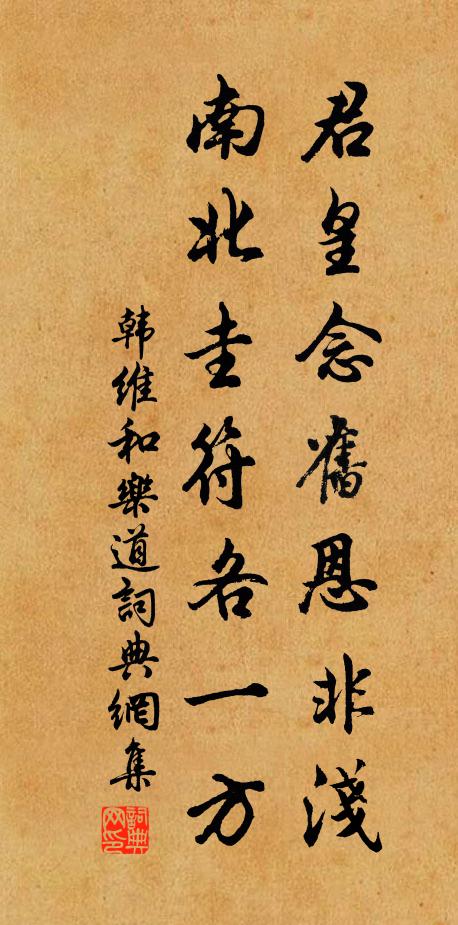 君皇念舊恩非淺
南北圭符各一方
韩維和樂道詞典網集
詞典网印